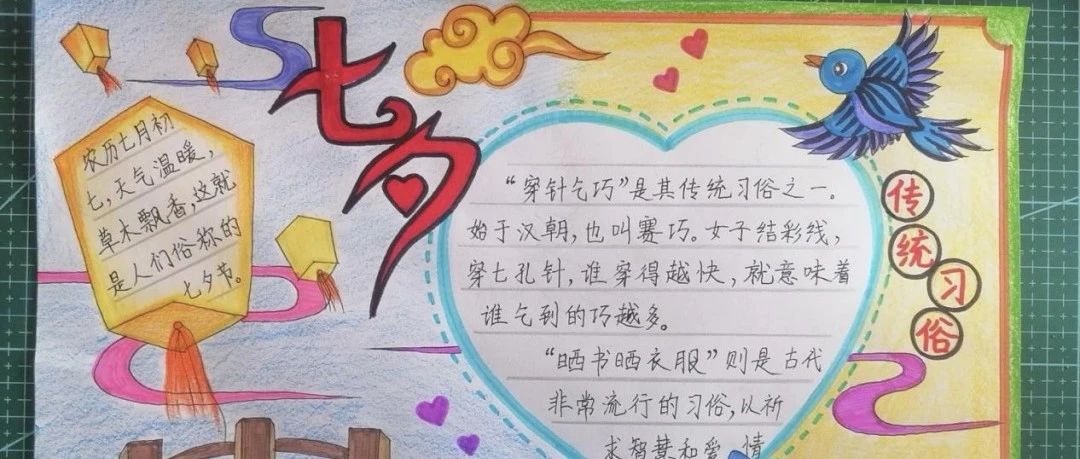 七夕
农历七月初
七,天气温暖,
草木飘香,这就
是人们俗称的
七夕节。
“穿针乞巧”是其传统习俗之一。
始于汉朝,也叫赛巧。女子结彩线,
穿七孔针,谁穿得越快,就意味着
谁乞到的巧越多。
“晒书晒衣服”则是古代
非常流行的习俗,以祈
求智慧和爱情
传统习俗